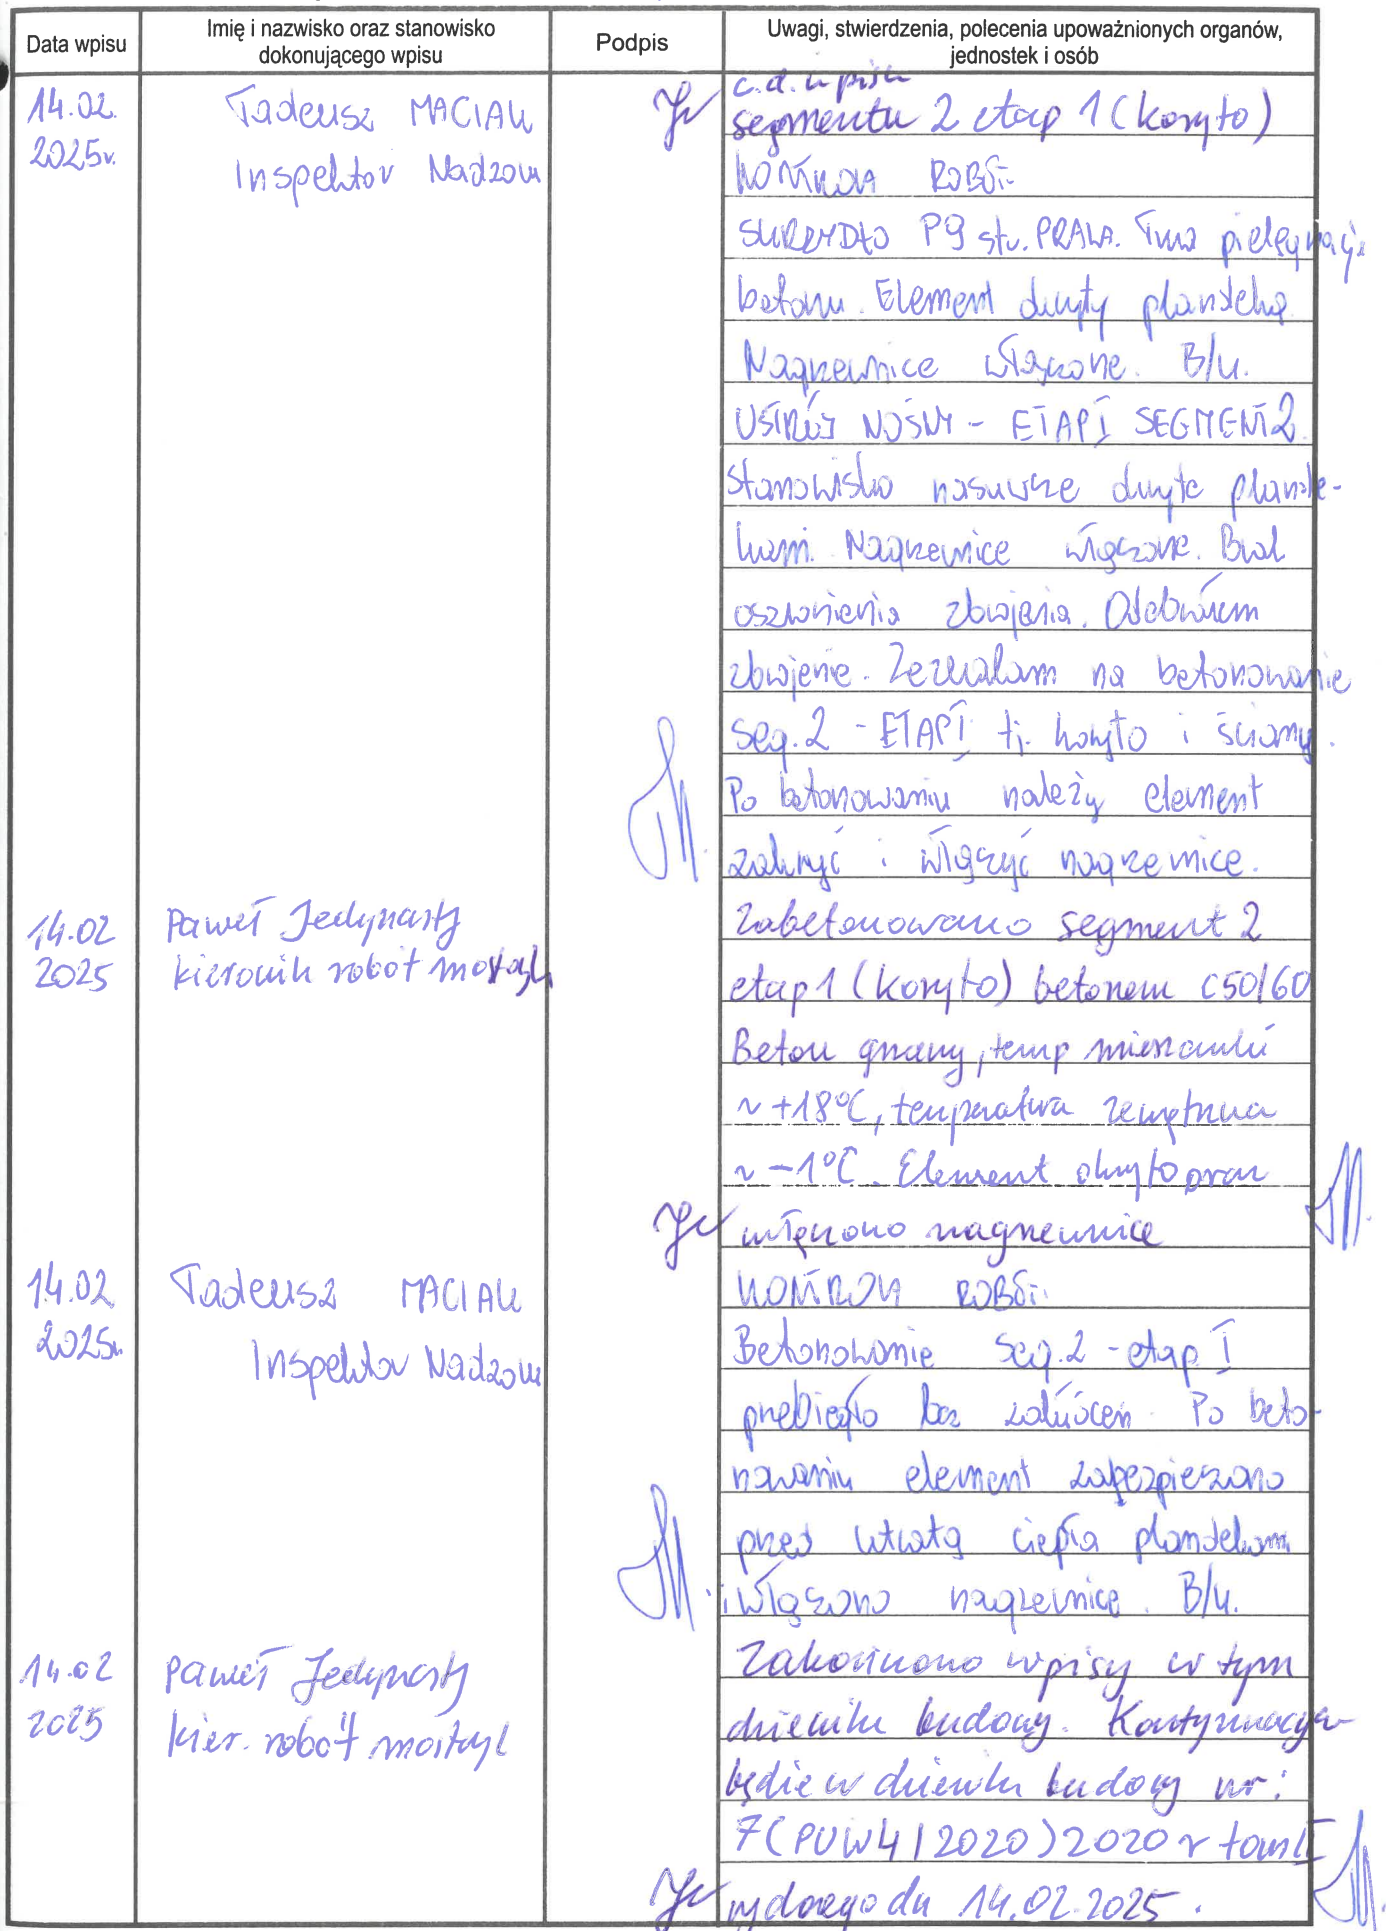 Data wpisu
Imię i nazwisko oraz stanowisko
dokonującego wpisu
Podpis
Uwagi, stwierdzenia, polecenia upoważnionych organów,
jednostek i osób
14.02.
2025r.
Tadeusz MACIAK
Inspektor Nadzoru
c.d. wpisu
segmentu 2 etap 1 (koryto)
KONTROLA ROBÓT.
SKRZYDŁO P9 str. PRAWA. Trwa pielęgnacja
betonu. Element okryty plandeką
Nagrzewnice włączone. B/u.
USTRÓJ NOŚNY - ETAP I SEGMENT 2.
Stanowisko nasuwcze okryte plande-
kami. Nagrzewnice włączone. Brak
oszronienia zbrojenia. Odebrałem
zbrojenie. Zezwalam na betonowanie
seg. 2 - ETAP I tj. koryto i ściany.
Po betonowaniu należy element
zakryć i włączyć nagrzewnice.
14.02
2025
Paweł Jedynasty
kierownik robót mostowych
Zabetonowano segment 2
etap 1 (koryto) betonem C50/60
Beton grzany, temp mieszanki
~ +18°C, temperatura zewnętrzna
~ -1°C. Element okryto oraz
włączono nagrzewnice
14.02
2025r.
Tadeusz MACIAK
Inspektor Nadzoru
KONTROLA ROBÓT.
Betonowanie seg. 2 - etap I
przebiegło bez zakłóceń. Po beto-
nowaniu element zabezpieczono
przed utratą ciepła plandekami
i włączono nagrzewnice. B/u.
14.02
2025
Paweł Jedynasty
kier. robót mostowych
Zakończono wpisy w tym
dzienniku budowy. Kontynuacja
będzie w dzienniku budowy nr:
7(PUW4/2020)2020r tom II
wydanego dn 14.02.2025.